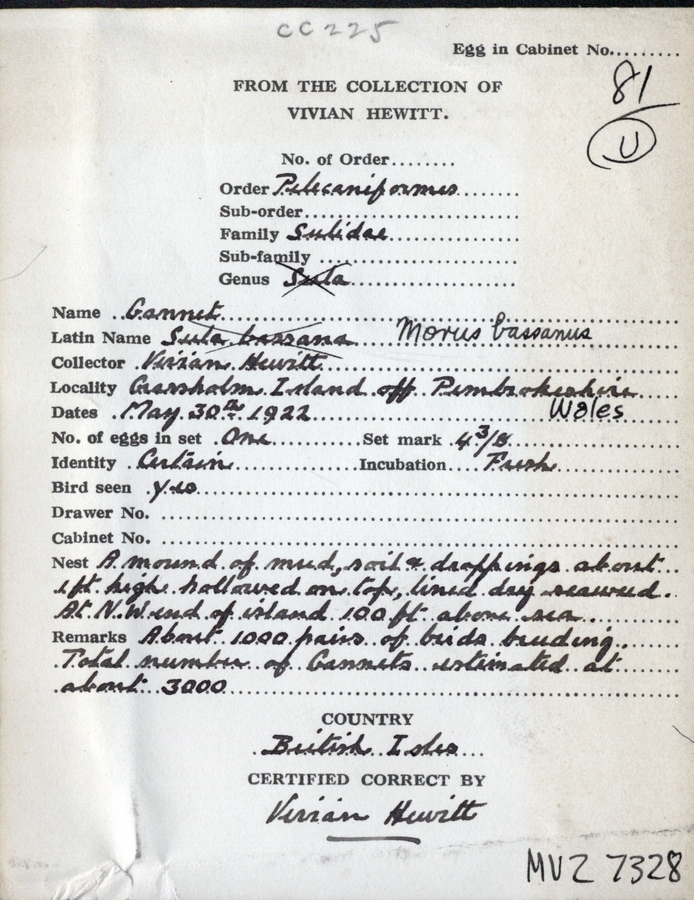 CC225
Egg in Cabinet No.........
81
U
FROM THE COLLECTION OF
VIVIAN HEWITT.
No. of Order........
Order Pelecaniformes
Sub-order
Family Sulidae
Sub-family
Genus Sula
Name Gannet
Latin Name Sula bassana Morus bassanus
Collector Vivian Hewitt
Locality Grassholm Island off Pembrokeshire
Wales
Dates May 30th 1922
No. of eggs in set One Set mark 4 3/B
Identity Certain Incubation Fresh
Bird seen yes
Drawer No.
Cabinet No.
Nest A mound of mud, soil & droppings about
1 ft high hollowed on top, lined dry seaweed.
At N.W end of island 100 ft above sea
Remarks About 1000 pairs of birds breeding.
Total number of Gannets estimated at
about 3000
COUNTRY
British Isles
CERTIFIED CORRECT BY
Vivian Hewitt
MVZ 7328